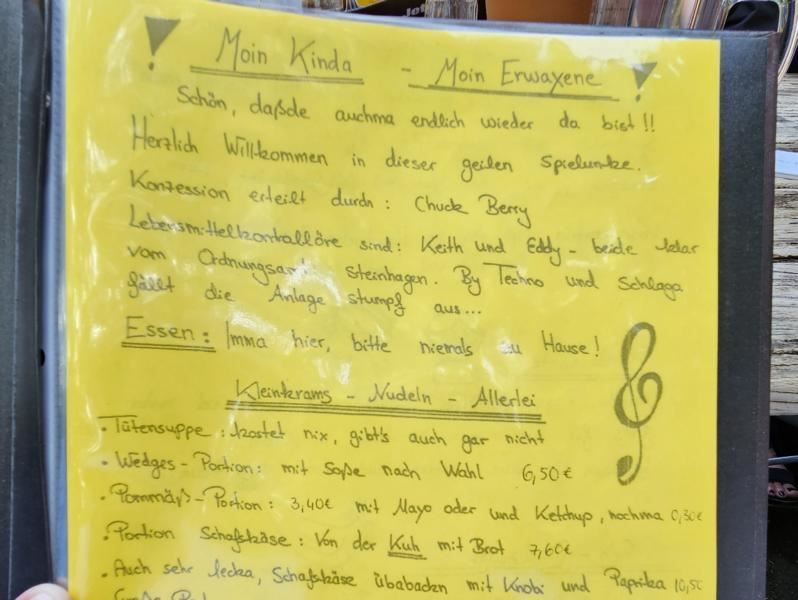 Moin Kinda - Moin Erwaxene
Schön, daßde auchma endlich wieder da bist!!
Herzlich Willkommen in dieser geilen Spielunke.
Konzession erteilt durch: Chuck Berry
Lebensmittelkontrallöre sind: Keith und Eddy - beide klar
vom Ordnungsamt Steinhagen. By Techno und Schlaga
fällt die Anlage stumpf aus...
Essen: Imma hier, bitte niemals zu Hause!
Kleinkrams - Nudeln - Allerlei
• Tütensuppe: kostet nix, gibt's auch gar nicht
• Wedges-Portion: mit Soße nach Wahl 6,50€
• Pommäß-Portion: 3,40€ mit Mayo oder und Ketchup, nochma 0,30€
• Portion Schafskäse: Von der Kuh mit Brot 7,60€
• Auch sehr lecka, Schafskäse übabackn mit Knobi und Paprika 10,5